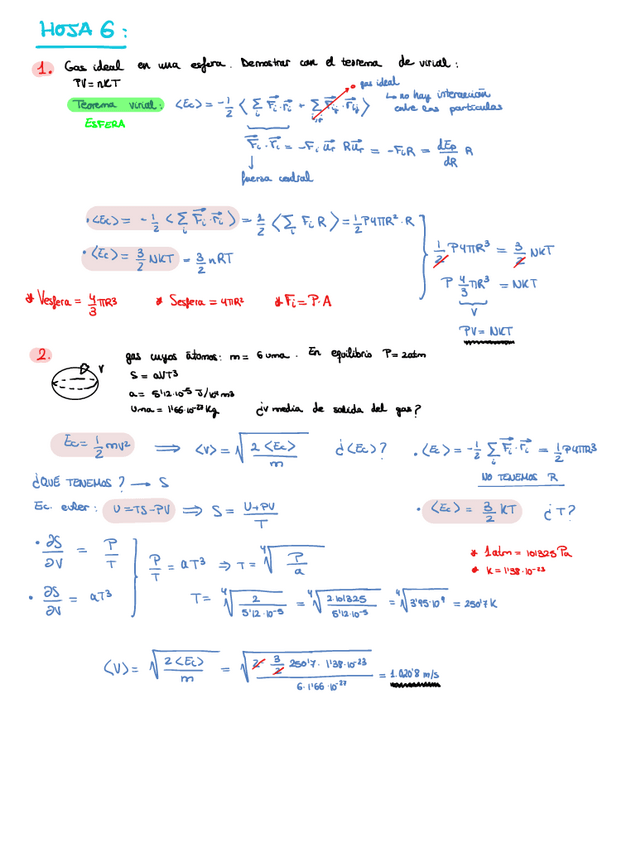 HOJA 6:
1. Gas ideal en una esfera. Demostrar con el teorema de virial:
PV = nKT
gas ideal
Teorema virial: ⟨Ec⟩ = -1/2 ⟨ Σi F⃗i·r⃗i + Σi,j F⃗ij·r⃗ij ⟩
↳ no hay interacción entre las partículas
ESFERA
F⃗i·r⃗i = -Fi u⃗r R u⃗r = -FiR = dEp/dR R
↓
fuerza central
• ⟨Ec⟩ = -1/2 ⟨ Σi F⃗i·r⃗i ⟩ = 1/2 ⟨ Σi Fi R ⟩ = 1/2 P4πR² · R
• ⟨Ec⟩ = 3/2 NKT = 3/2 nRT
1/2 P4πR³ = 3/2 NKT
P 4/3 πR³ = NKT
V
PV = NKT
* Vesfera = 4/3 πR³ * Sesfera = 4πR² * Fi = P·A
2. gas cuyos átomos: m = 6 uma. En equilibrio P = 2atm
V
S = aVT³
a = 5'12·10⁻⁵ J/K⁴m³
uma = 1'66·10⁻²⁷ Kg ¿v media de salida del gas?
Ec = 1/2 mv² ⟹ ⟨v⟩ = √(2⟨Ec⟩/m) ¿⟨Ec⟩? • ⟨Ec⟩ = -1/2 Σi F⃗i·r⃗i = 1/2 P4πR³
NO TENEMOS R
¿QUÉ TENEMOS? → S
Ec. euler: U = TS - PV ⟹ S = (U + PV)/T
• ⟨Ec⟩ = 3/2 KT ¿T?
• ∂S/∂V = P/T
• ∂S/∂V = aT³
P/T = aT³ ⇒ T = ⁴√(P/a)
* 1atm = 101325 Pa
* K = 1'38·10⁻²³
T = ⁴√(2/5'12·10⁻⁵) = ⁴√(2·101325/5'12·10⁻⁵) = ⁴√(3'95·10⁹) = 250'7 K
⟨V⟩ = √(2⟨Ec⟩/m) = √(2·3/2 250'7·1'38·10⁻²³/6·1'66·10⁻²⁷) = 1.020'8 m/s